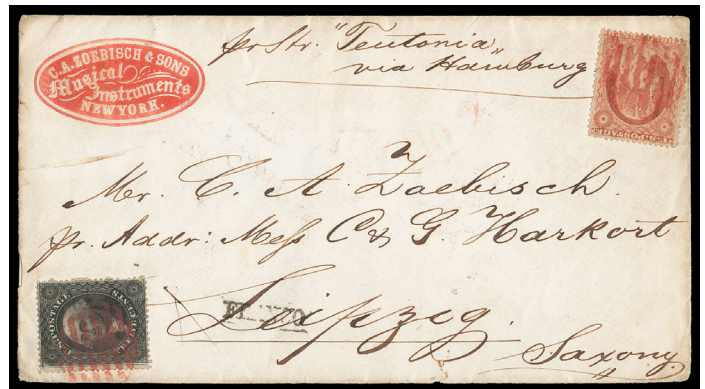 C.A. ZOEBISCH & SONS
Musical
Instruments
NEW YORK.
pr Str. "Teutonia"
via Hamburg
U.S. POSTAGE
Mr. C. A. Zoebisch.
pr. Addr: Mess C & G. Harkort
Leipzig.
FRANCO
Saxony.
U.S. POSTAGE